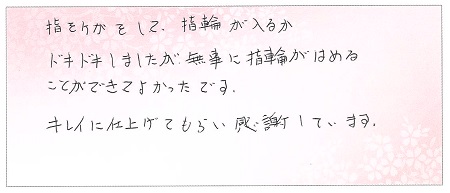 指をケガをして、指輪が入るか
ドキドキしましたが、無事に指輪がはめる
ことができてよかったです.
キレイに仕上げてもらい感謝しています.